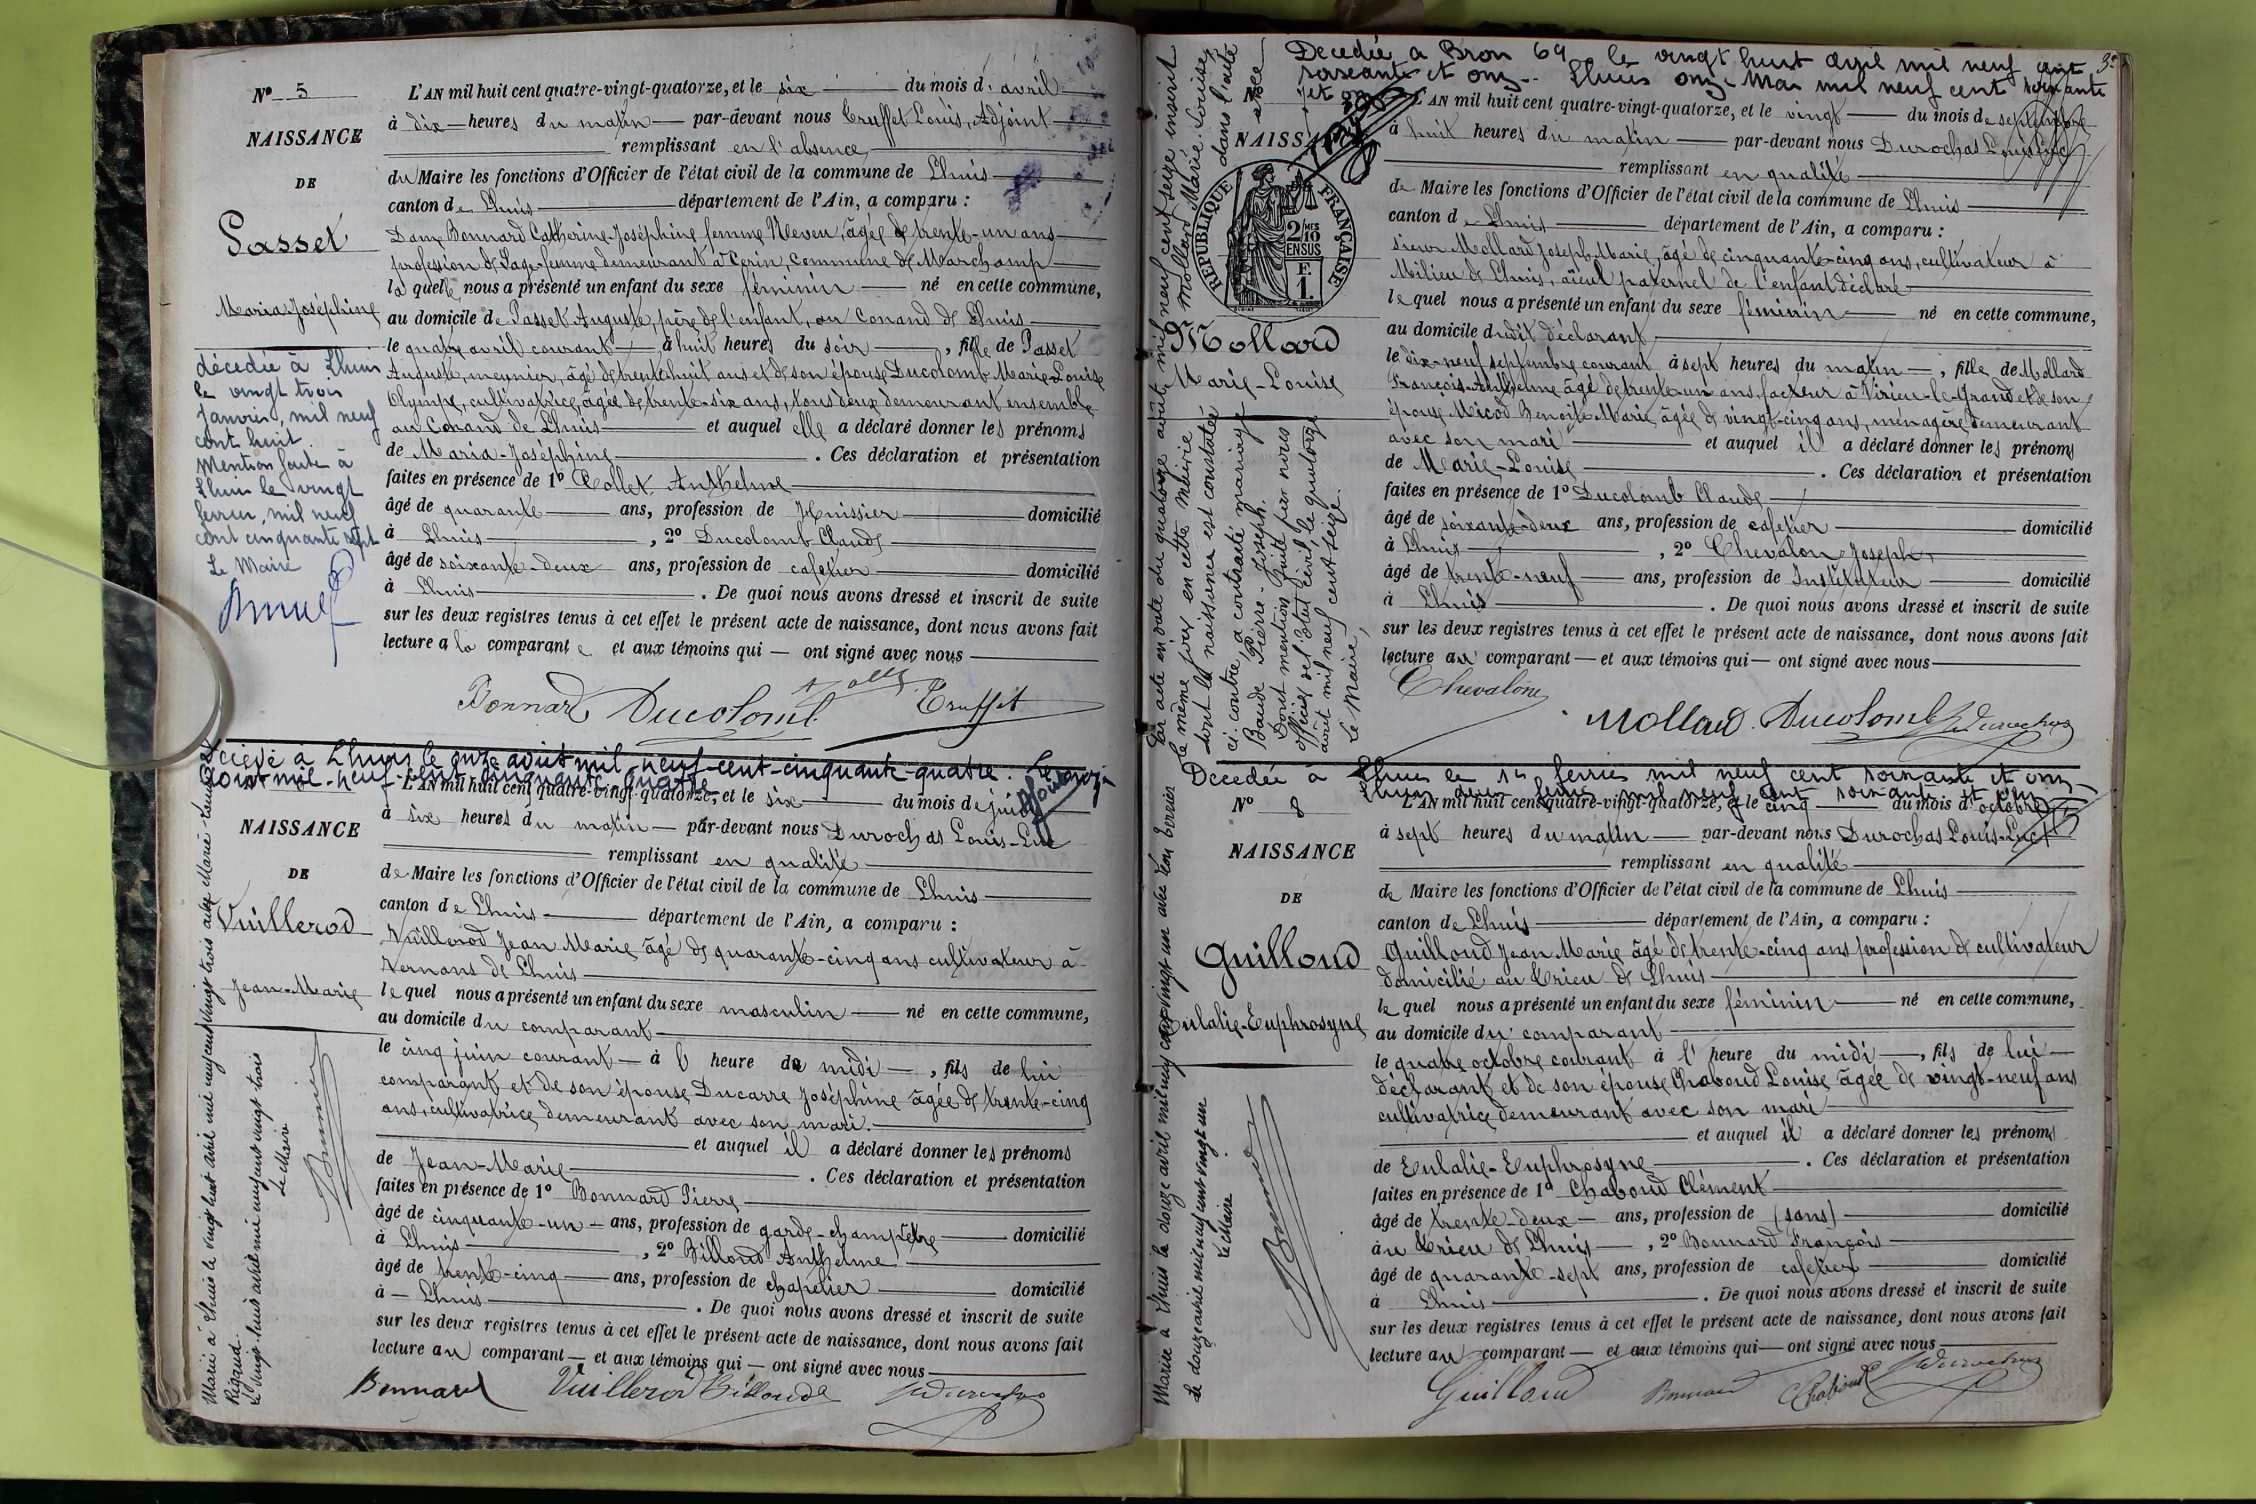 Nº 5
NAISSANCE
DE
Passet
Maria Joséphine
décédée à Lhuis
le vingt trois
janvier, mil neuf
cent huit.
Mention faite à
Lhuis le vingt
février, mil neuf
cent cinquante sept
Le Maire
L'AN mil huit cent quatre-vingt-quatorze, et le six du mois d'avril
à dix heures du matin par-devant nous Truffet Louis, Adjoint
remplissant en l'absence
du Maire les fonctions d'Officier de l'état civil de la commune de Lhuis
canton de Lhuis département de l'Ain, a comparu :
Dame Bonnard Catherine-Joséphine femme Neveu, âgée de trente-un ans
profession de Sage-femme demeurant à Cerin, commune de Marchamp
laquelle nous a présenté un enfant du sexe féminin né en cette commune,
au domicile de Passet Auguste, père de l'enfant, au Conand de Lhuis
le quatre avril courant à huit heures du soir, fille de Passet
Auguste, meunier, âgé de trente-huit ans et de son épouse Ducolomb Marie-Louise
Olympe, cultivatrice, âgée de trente-six ans, tous deux demeurant ensemble
au Conand de Lhuis et auquel elle a déclaré donner les prénoms
de Maria-Joséphine. Ces déclaration et présentation
faites en présence de 1º Collet Anthelme
âgé de quarante ans, profession de Huissier domicilié
à Lhuis, 2º Ducolomb Claude
âgé de soixante-deux ans, profession de cafetier domicilié
à Lhuis. De quoi nous avons dressé et inscrit de suite
sur les deux registres tenus à cet effet le présent acte de naissance, dont nous avons fait
lecture a la comparante et aux témoins qui — ont signé avec nous
Bonnard Ducolomb Collet Truffet
Décédé à Lhuis le onze août mil-neuf-cent-cinquante-quatre.
août mil-neuf-cent-cinquante-quatre
NAISSANCE
DE
Vuillerod
Jean-Marie
Marié à Lhuis le vingt huit avril mil neuf cent vingt trois avec Marie
Rigaud.
Le vingt-huit avril mil neuf cent vingt trois
Le Maire
L'AN mil huit cent quatre-vingt-quatorze, et le six du mois de juin
à six heures du matin — par-devant nous Durochas Louis-Luc
remplissant en qualité
de Maire les fonctions d'Officier de l'état civil de la commune de Lhuis
canton de Lhuis département de l'Ain, a comparu :
Vuillerod Jean Marie âgé de quarante-cinq ans cultivateur à
Vernans de Lhuis
lequel nous a présenté un enfant du sexe masculin né en cette commune,
au domicile du comparant
le cinq juin courant — à l' heure de midi —, fils de lui
comparant et de son épouse Ducarre Joséphine âgée de trente-cinq
ans, cultivatrice demeurant avec son mari.
et auquel il a déclaré donner les prénoms
de Jean-Marie. Ces déclaration et présentation
faites en présence de 1º Bonnard Pierre
âgé de cinquante-un — ans, profession de garde-champêtre domicilié
à Lhuis, 2º Billoud Anthelme
âgé de trente-cinq ans, profession de chapelier domicilié
à — Lhuis. De quoi nous avons dressé et inscrit de suite
sur les deux registres tenus à cet effet le présent acte de naissance, dont nous avons fait
lecture au comparant — et aux témoins qui — ont signé avec nous
Bonnard Vuillerod Billoud Durochas
Décédée à Bron 69 le vingt huit avril mil neuf cent
soixante et onze. Lhuis onze Mai mil neuf cent soixante
et onze
NAISSANCE
RÉPUBLIQUE FRANÇAISE
2/10MES
EN SUS
F.
1.
Mollard
Marie-Louise
Par acte en date du quatorze août mil neuf cent seize inscrit
le même jour en cette Mairie Mollard Marie-Louise,
dont la naissance est constatée dans l'acte
ci-contre, a contracté mariage avec
Baude Pierre-Joseph.
Dont mention faite par nous
officier de l'état civil, le quatorze
août mil neuf cent seize.
Le Maire,
L'AN mil huit cent quatre-vingt-quatorze, et le vingt du mois de septembre
à huit heures du matin par-devant nous Durochas Louis-Luc
remplissant en qualité
de Maire les fonctions d'Officier de l'état civil de la commune de Lhuis
canton de Lhuis département de l'Ain, a comparu :
sieur Mollard Joseph-Marie, âgé de cinquante-cinq ans, cultivateur à
Milieu de Lhuis, aïeul paternel de l'enfant déclaré
lequel nous a présenté un enfant du sexe féminin né en cette commune,
au domicile dudit déclarant
le dix-neuf septembre courant à sept heures du matin —, fille de Mollard
François-Anthelme âgé de trente-un ans, facteur à Virieu-le-Grand et de son
épouse Micod Benoite-Marie, âgée de vingt-cinq ans, ménagère demeurant
avec son mari et auquel il a déclaré donner les prénoms
de Marie-Louise. Ces déclaration et présentation
faites en présence de 1º Ducolomb Claude
âgé de soixante-deux ans, profession de cafetier domicilié
à Lhuis, 2º Chevalon Joseph
âgé de trente-neuf ans, profession de Instituteur domicilié
à Lhuis. De quoi nous avons dressé et inscrit de suite
sur les deux registres tenus à cet effet le présent acte de naissance, dont nous avons fait
lecture au comparant — et aux témoins qui — ont signé avec nous
Chevalon Mollard Ducolomb Durochas
Décédée à Lhuis le 1er février mil neuf cent soixante et onze
Lhuis deux février mil neuf cent soixante et onze
Nº 8
NAISSANCE
DE
Guilloud
Eulalie-Euphrosyne
Mariée à Lhuis le douze avril mil neuf cent vingt un avec
Le douze avril mil neuf cent vingt un
Le Maire
L'AN mil huit cent quatre-vingt-quatorze, et le cinq du mois d'octobre
à sept heures du matin par-devant nous Durochas Louis-Luc
remplissant en qualité
de Maire les fonctions d'Officier de l'état civil de la commune de Lhuis
canton de Lhuis département de l'Ain, a comparu :
Guilloud Jean Marie âgé de trente-cinq ans profession de cultivateur
domicilié au Crieu de Lhuis
lequel nous a présenté un enfant du sexe féminin né en cette commune,
au domicile du comparant
le quatre octobre courant à l' heure du midi —, fils de lui
déclarant et de son épouse Chaboud Louise âgée de vingt-neuf ans
cultivatrice demeurant avec son mari
et auquel il a déclaré donner les prénoms
de Eulalie-Euphrosyne. Ces déclaration et présentation
faites en présence de 1º Chaboud Clément
âgé de trente-deux — ans, profession de (sans) domicilié
au Crieu de Lhuis, 2º Bonnard François
âgé de quarante-sept ans, profession de cafetier domicilié
à Lhuis. De quoi nous avons dressé et inscrit de suite
sur les deux registres tenus à cet effet le présent acte de naissance, dont nous avons fait
lecture au comparant — et aux témoins qui — ont signé avec nous
Guilloud Bonnard Chaboud Durochas